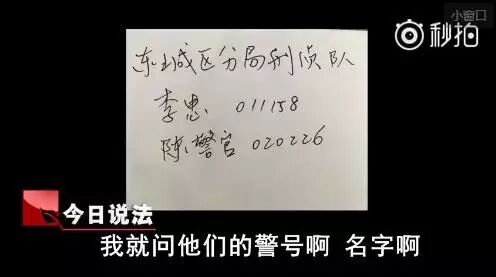 小窗口
秒拍
东城区分局刑侦队
李忠 011158
陈警官 020226
今日说法
我就问他们的警号啊 名字啊